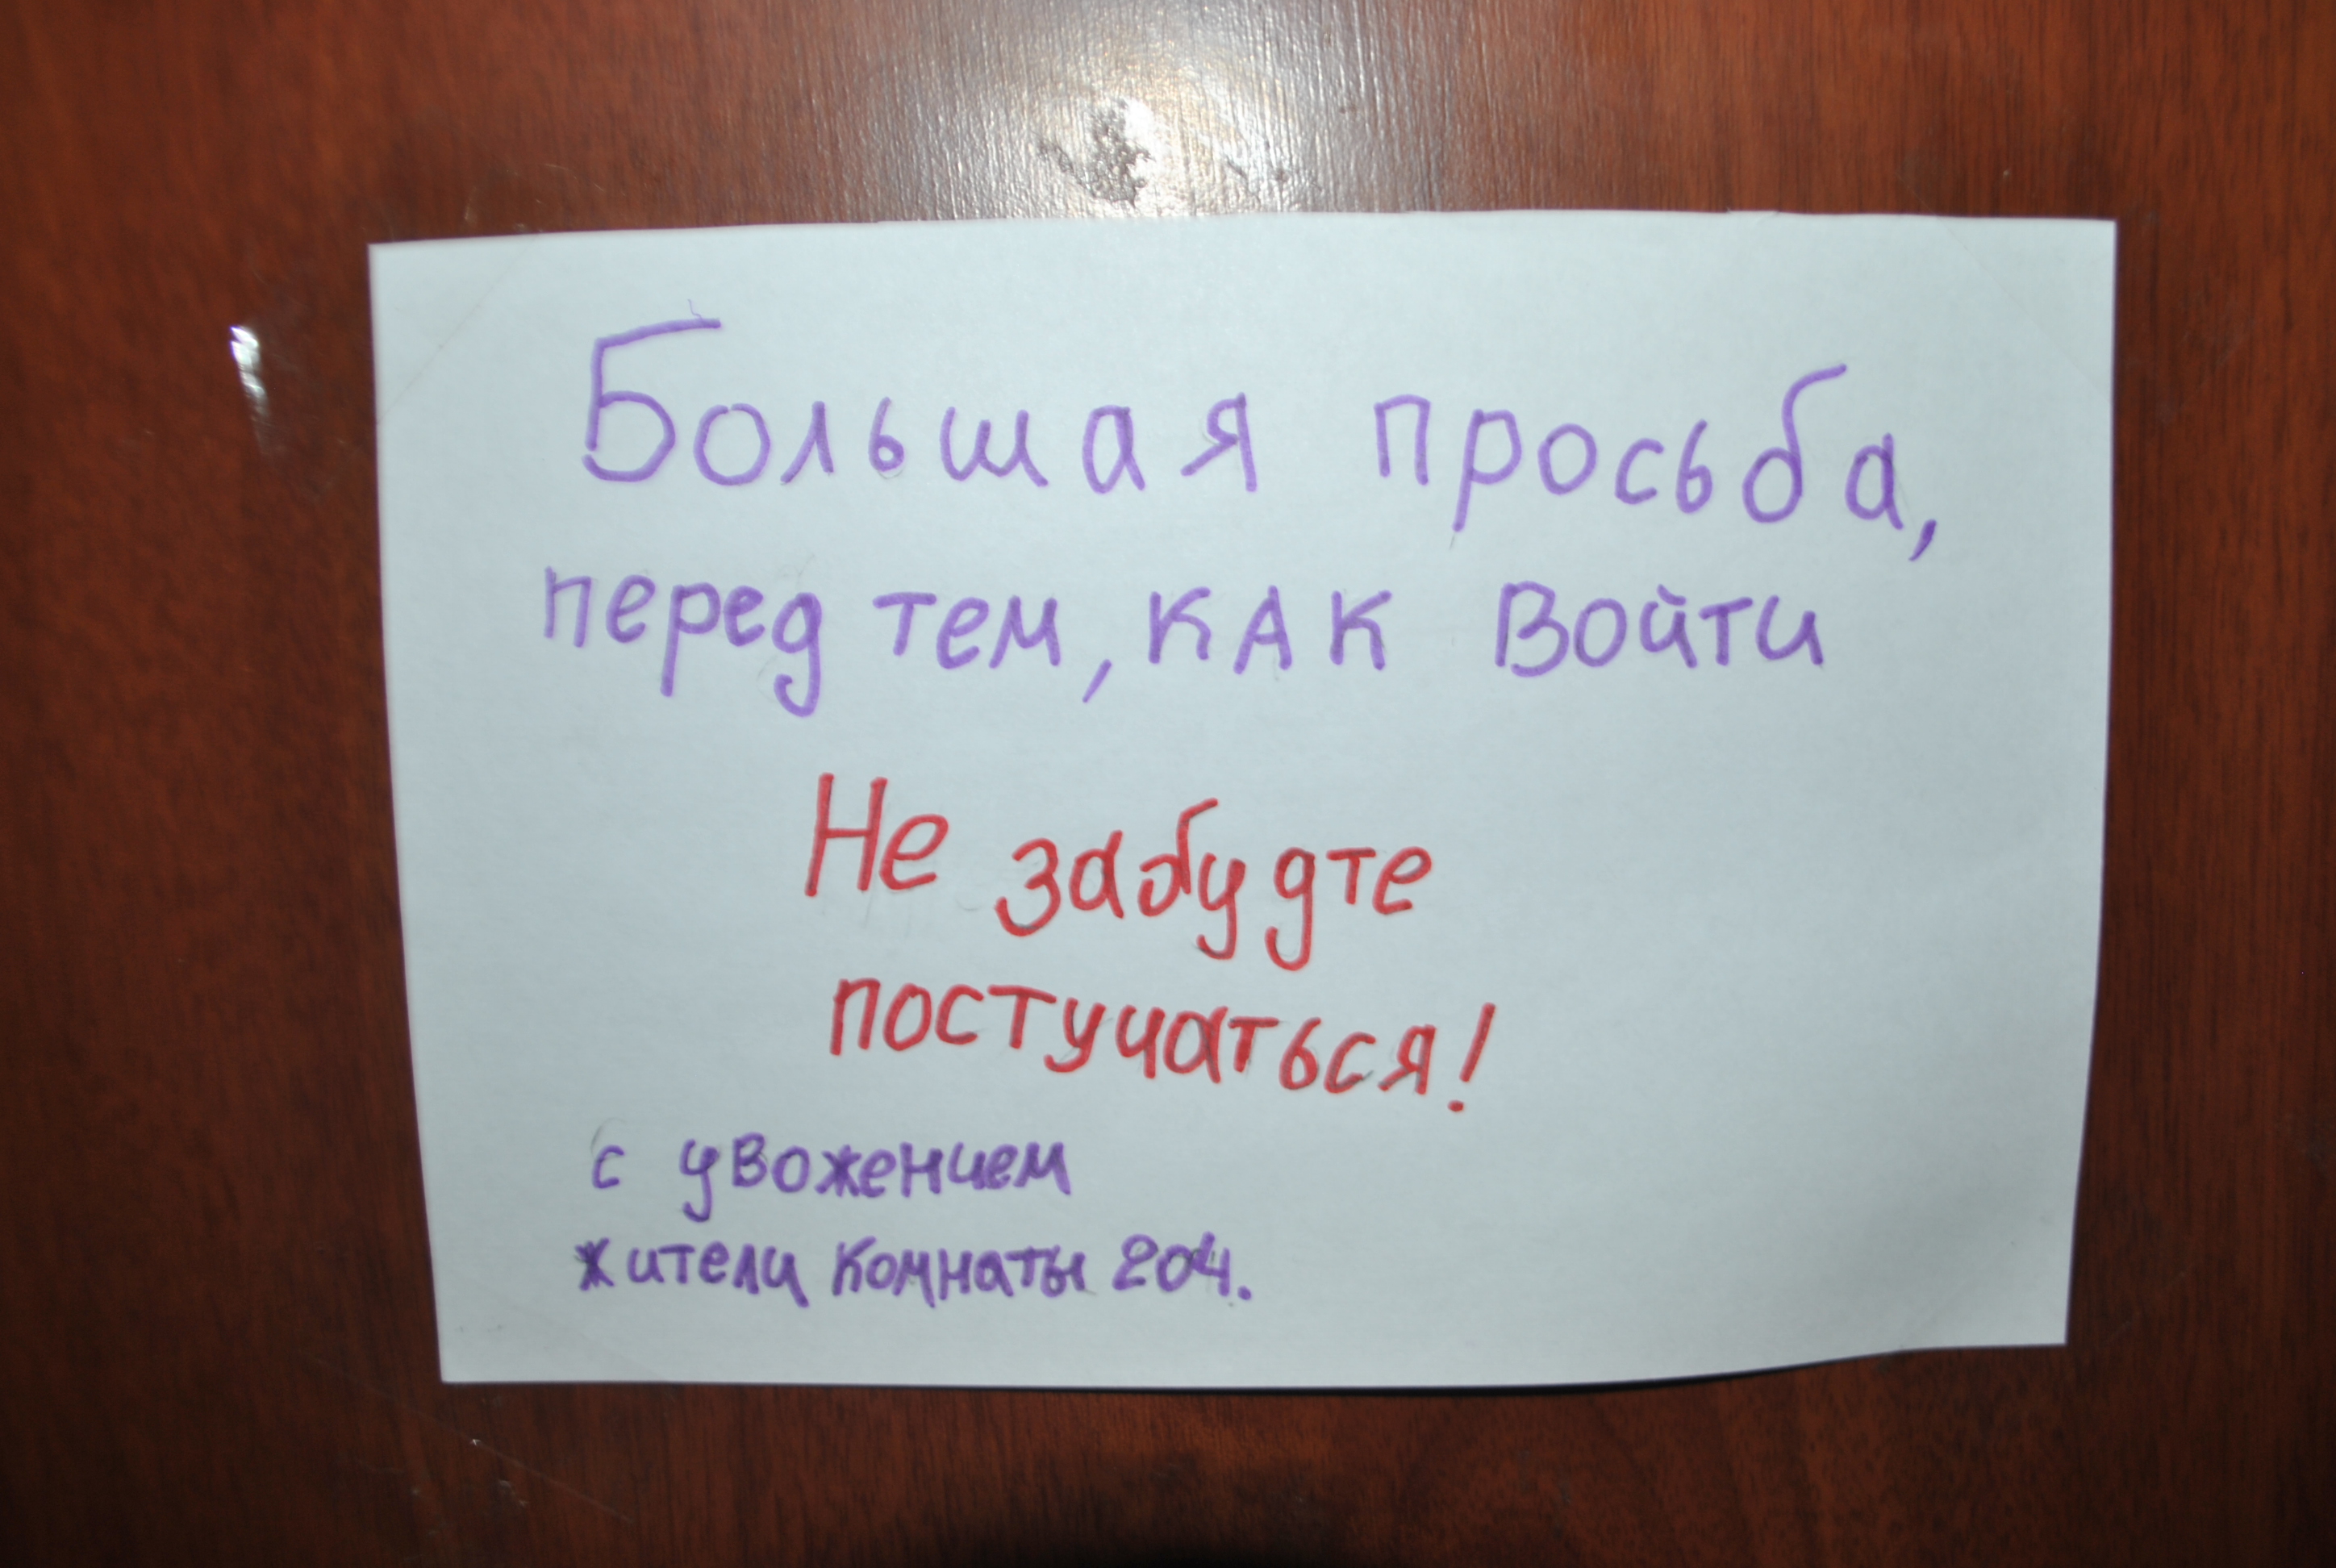 Большая просьба,
перед тем, кАк Войти
Не забудте
постучаться!
с увожением
жители комнаты 204.